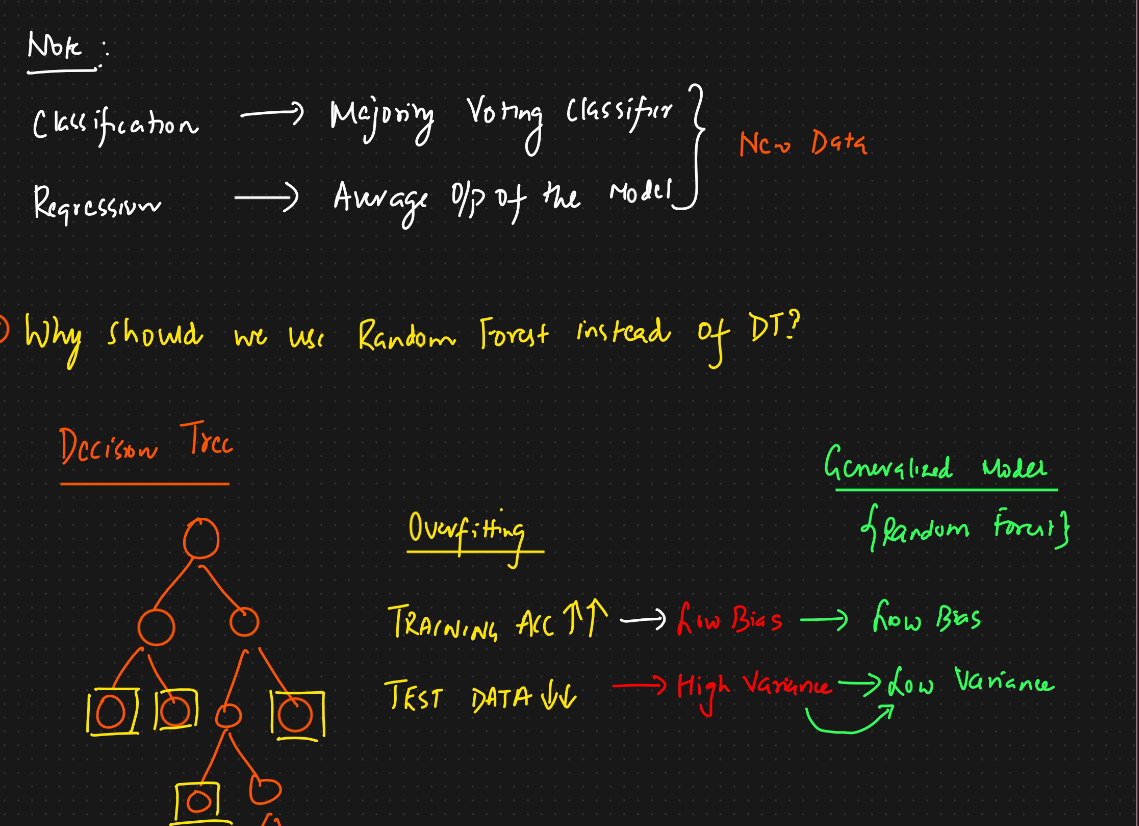 Note :
Classification → Majority Voting Classifier } New Data
Regression → Average O/p of the Model
Why should we use Random Forest instead of DT?
Decision Tree
Generalized Model
{Random Forest}
Overfitting
TRAINING ACC ↑↑ → Low Bias → Low Bias
TEST DATA ↓↓ → High Variance → Low Variance